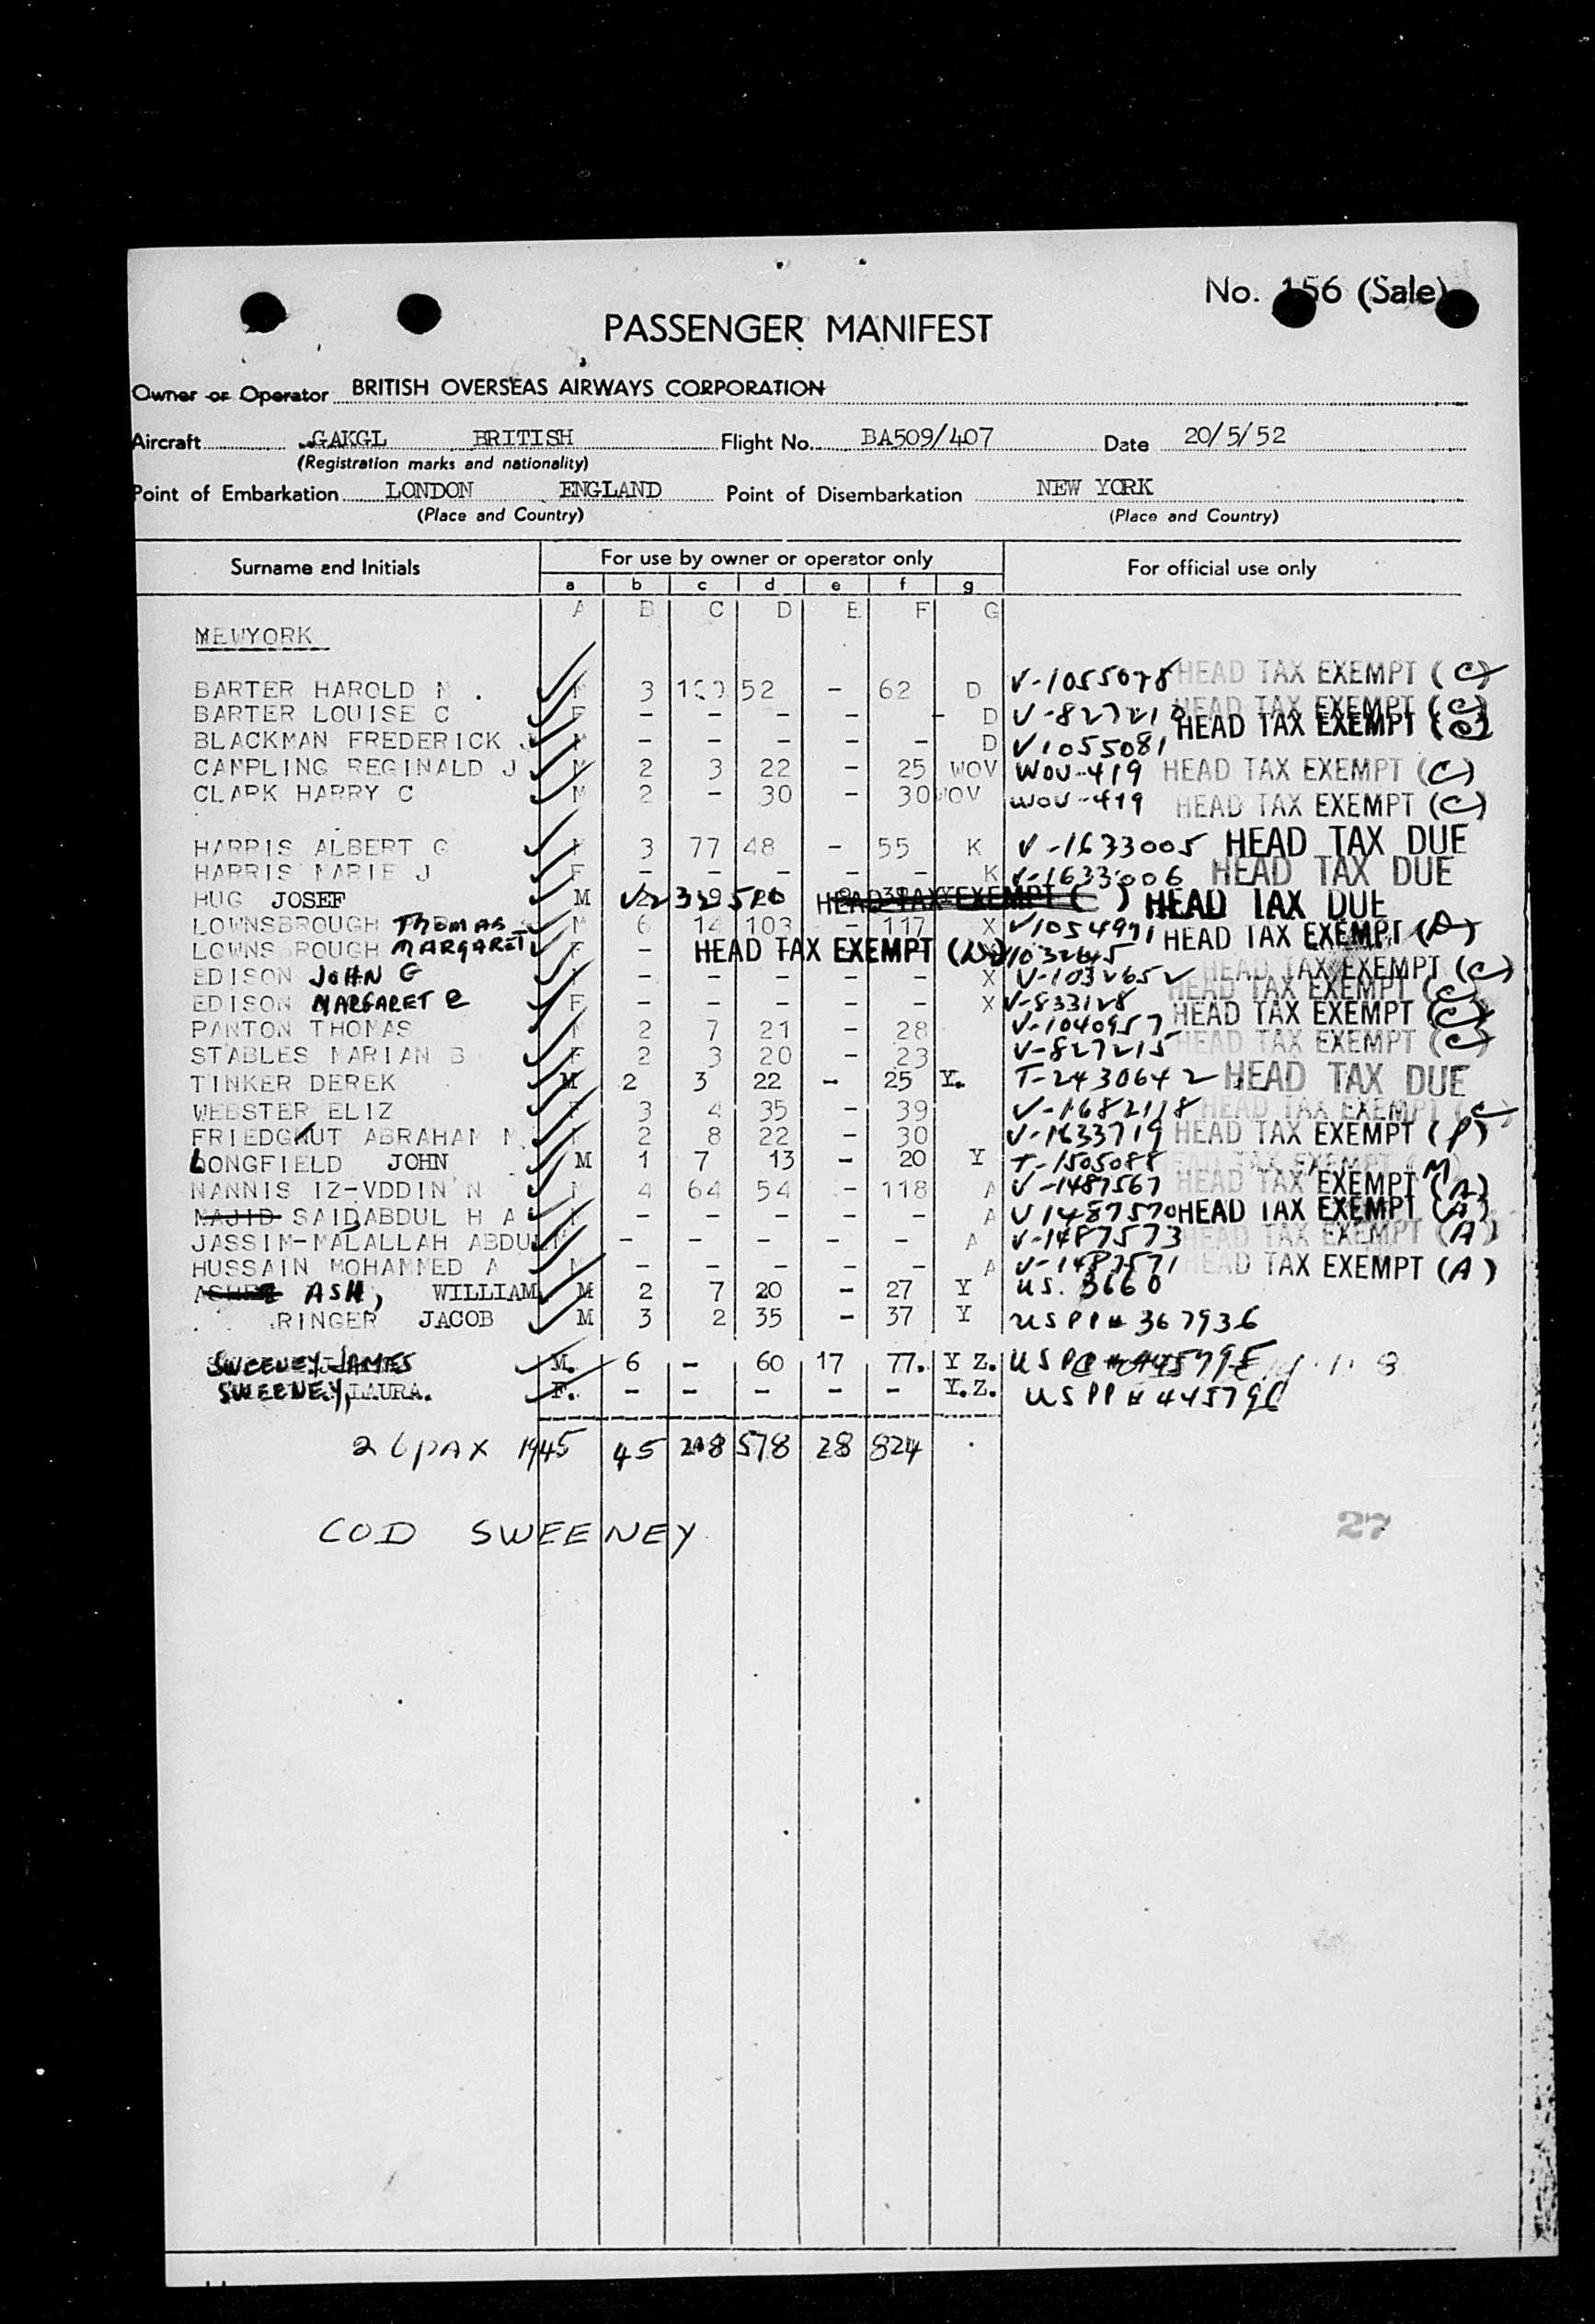 No. 156 (Sale)
PASSENGER MANIFEST
Owner or Operator BRITISH OVERSEAS AIRWAYS CORPORATION
Aircraft GAKGL BRITISH Flight No. BA509/407 Date 20/5/52
(Registration marks and nationality)
Point of Embarkation LONDON ENGLAND Point of Disembarkation NEW YORK
(Place and Country) (Place and Country)
Surname and Initials For use by owner or operator only For official use only
a b c d e f g
A B C D E F G
NEWYORK
BARTER HAROLD M 3 52 - 62 D V-1055078 HEAD TAX EXEMPT (C)
BARTER LOUISE C F - - - - - D HEAD TAX EXEMPT (C)
BLACKMAN FREDERICK J M - - - - - D V1055081 HEAD TAX EXEMPT
CAMPLING REGINALD J M 2 3 22 - 25 WOV WOV-419 HEAD TAX EXEMPT (C)
CLARK HARRY C M 2 - 30 - 30 WOV WOV-419 HEAD TAX EXEMPT (C)
HARRIS ALBERT G M 3 77 48 - 55 K V-1633005 HEAD TAX DUE
HARRIS MARIE J F - - - - - K V-1633006 HEAD TAX DUE
HUG JOSEF M HEAD TAX EXEMPT ( ) HEAD TAX DUE
LOWNSBROUGH THOMAS M 6 14 103 - 117 X V1054991 HEAD TAX EXEMPT (A)
LOWNSBROUGH MARGARET F - HEAD TAX EXEMPT
EDISON JOHN G - - - - - X V-1032652 HEAD TAX EXEMPT (C)
EDISON MARGARET E F - - - - - X V-833128 HEAD TAX EXEMPT (C)
PANTON THOMAS M 2 7 21 - 28 V-1040957 HEAD TAX EXEMPT (C)
STABLES MARIAN B F 2 3 20 - 23 V-827215 HEAD TAX EXEMPT (C)
TINKER DEREK M 2 3 22 - 25 Y. T-2430642 HEAD TAX DUE
WEBSTER ELIZ F 3 4 35 - 39 V-1682118 HEAD TAX EXEMPT (C)
FRIEDGHUT ABRAHAM M 2 8 22 - 30 V-1633719 HEAD TAX EXEMPT (P)
LONGFIELD JOHN M 1 7 13 - 20 Y T-1505088 HEAD TAX EXEMPT M
NANNIS IZ-VDDIN N M 4 64 54 - 118 A V-1487567 HEAD TAX EXEMPT (A)
MAJID SAIDABDUL H A - - - - - A V1487570 HEAD TAX EXEMPT (A)
JASSIM-MALALLAH ABDUL - - - - - A V-1487573 HEAD TAX EXEMPT (A)
HUSSAIN MOHAMMED A M - - - - - A V-1487571 HEAD TAX EXEMPT (A)
ASH, WILLIAM M 2 7 20 - 27 Y US. 3660
RINGER JACOB M 3 2 35 - 37 Y US PP # 367936
SWEENEY, JAMES M. 6 - 60 17 77. Y Z.
SWEENEY, LAURA. F. - - - - - Y.Z. US PP #
26 PAX 1945 45 578 28 824
COD SWEENEY
27